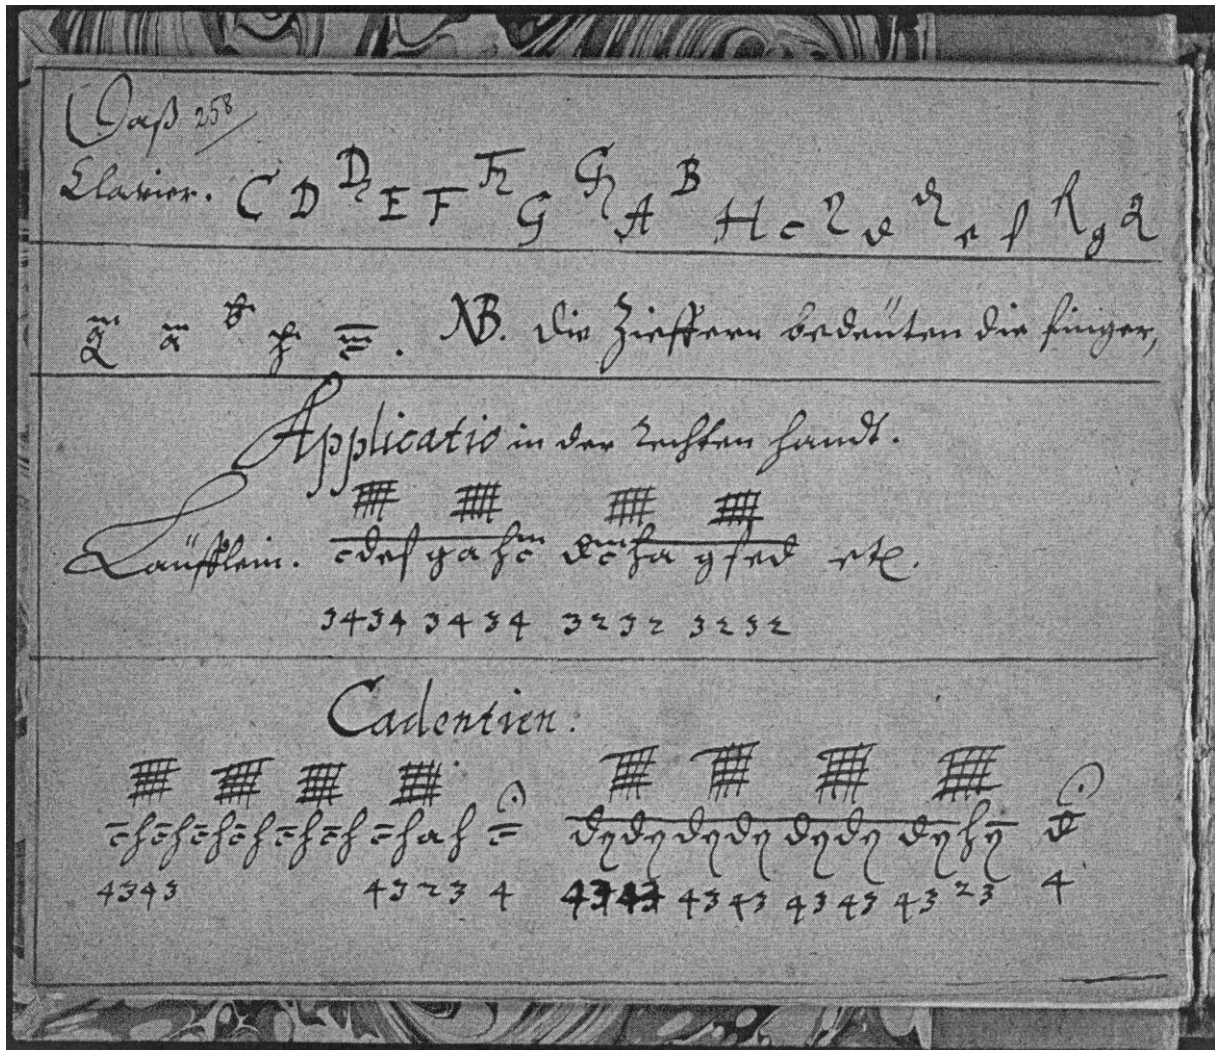 Daß 258
Clavier. C D D E F F G G A B H c d d e f f g
NB. die Zieffern bedeüten die finger,
Applicatio in der rechten handt.
Läüfflein. cdef gahc dcha gfed etc.
3434 3434 3232 3232
Cadentien.
chchchchchchchah c
dydydydydydydyhy d
4343 4323 4 4343 4343 4343 4323 4